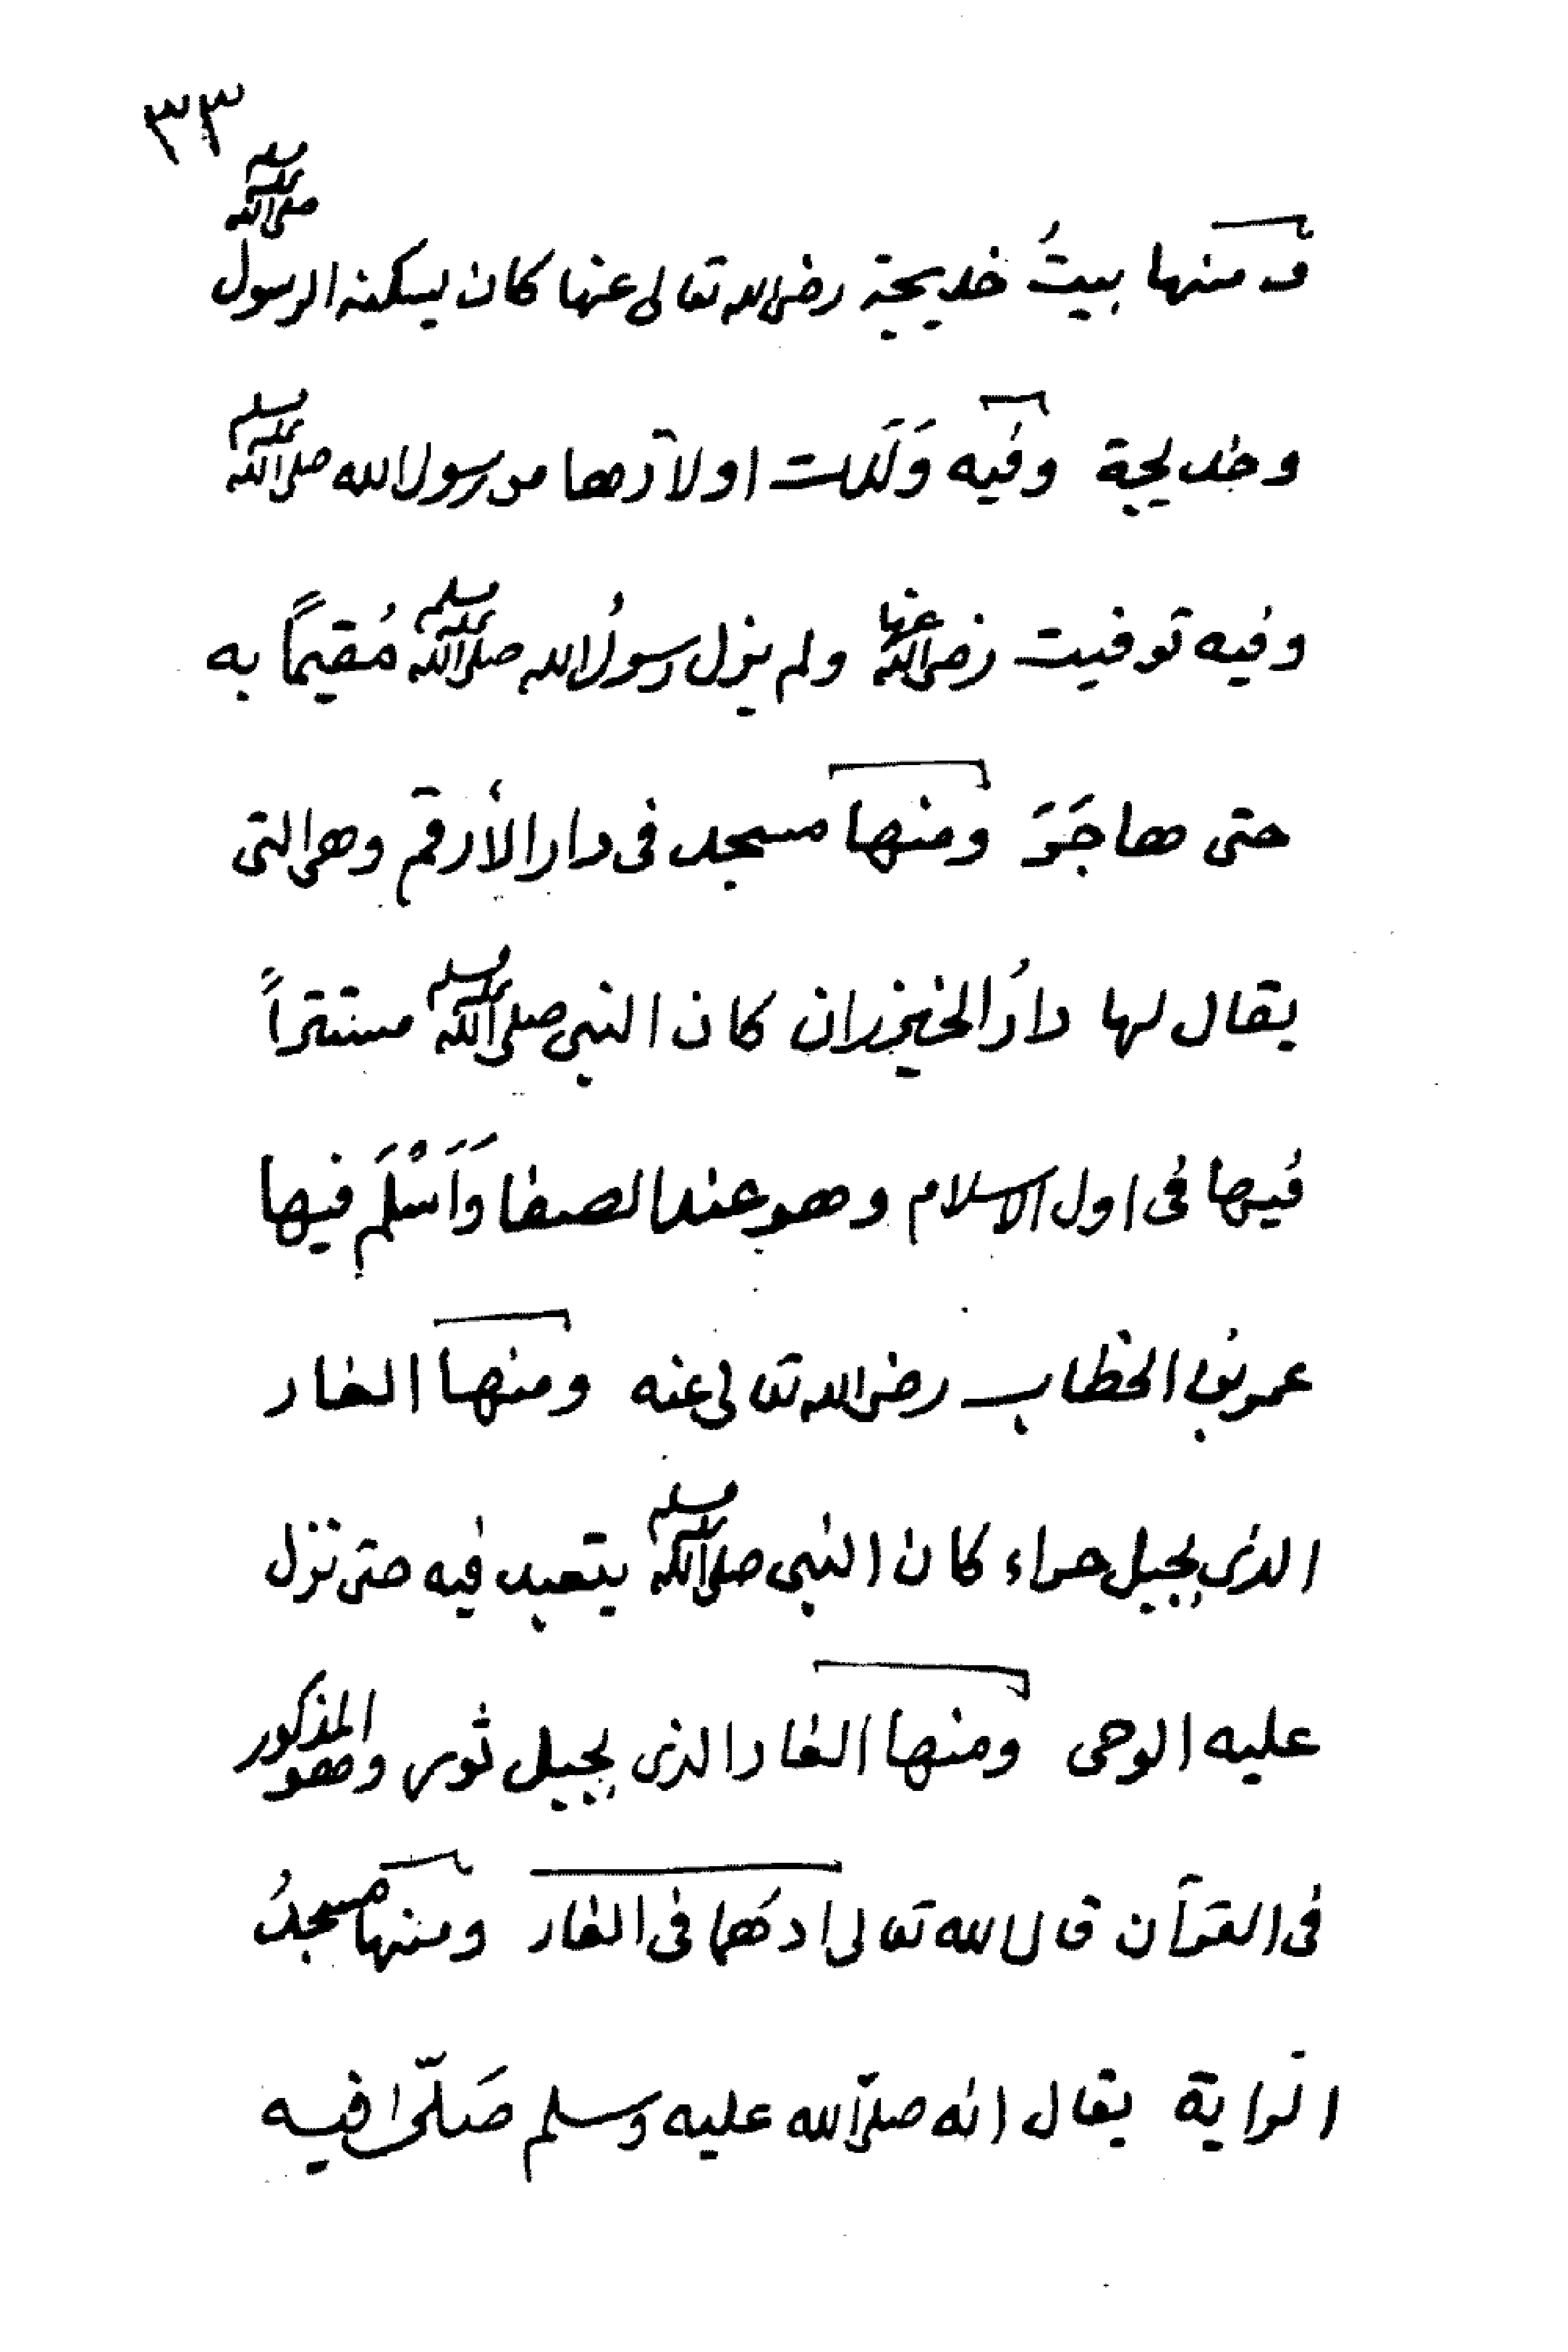 ٣٣
ومنها بيتُ خديجة رضى الله تعالى عنها كان يسكنه الرسول صلى الله عليه وسلم
وخديجة وفيه وَلَدَت اولادها من رسول الله صلى الله عليه وسلم
وفيه توفيت رضى الله عنها ولم يزل رسولُ الله صلى الله عليه وسلم مُقيماً به
حتى هاجَرَ ومنها مسجد فى دار الأرقم وهى التى
يقال لها دارُ الخيزران كان النبى صلى الله عليه وسلم مستتراً
فيها فى اول الاسلام وهو عند الصفا وَاَسْلَم فيها
عمر بن الخطاب رضى الله تعالى عنه ومنها الغار
الذى بجبل حراء كان النبى صلى الله عليه وسلم يتعبد فيه حتى نزل
عليه الوحى ومنها الغار الذى بجبل ثور وهو المذكور
فى القرآن قال الله تعالى اذ هُما فى الغار ومنها مسجدُ
الراية يقال انه صلى الله عليه وسلم صَلّى فيه